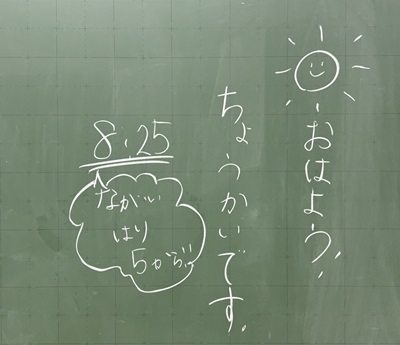 おはよう!
ちょうかいです。
8:25
ながい
はり
5から!!